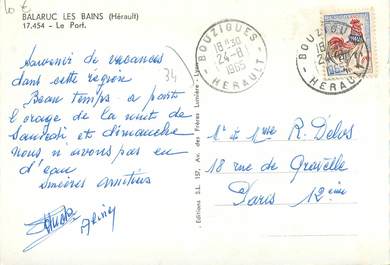 10 €
BALARUC LES BAINS (Hérault)
17.454 - Le Port.
34
Souvenir de vacances
dans cette région
Beau temps - a part
l'orage de la nuit de
Samedi et dimanche
nous n'avons pas eu
d'eau
Sincères amitiés
BOUZIGUES
18H30
24-8
1965
HERAULT
BOUZIGUES
18H30
24-8
HERAULT
Editions S.L. 157, Av. des Frères Lumière
Mr & Mme R. Delos
18 rue de Gravelle
Paris 12ème